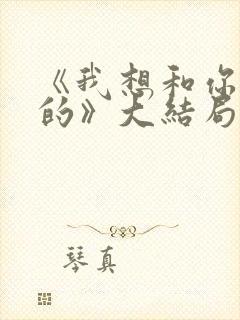 《我想和你
的》大结局
琴真